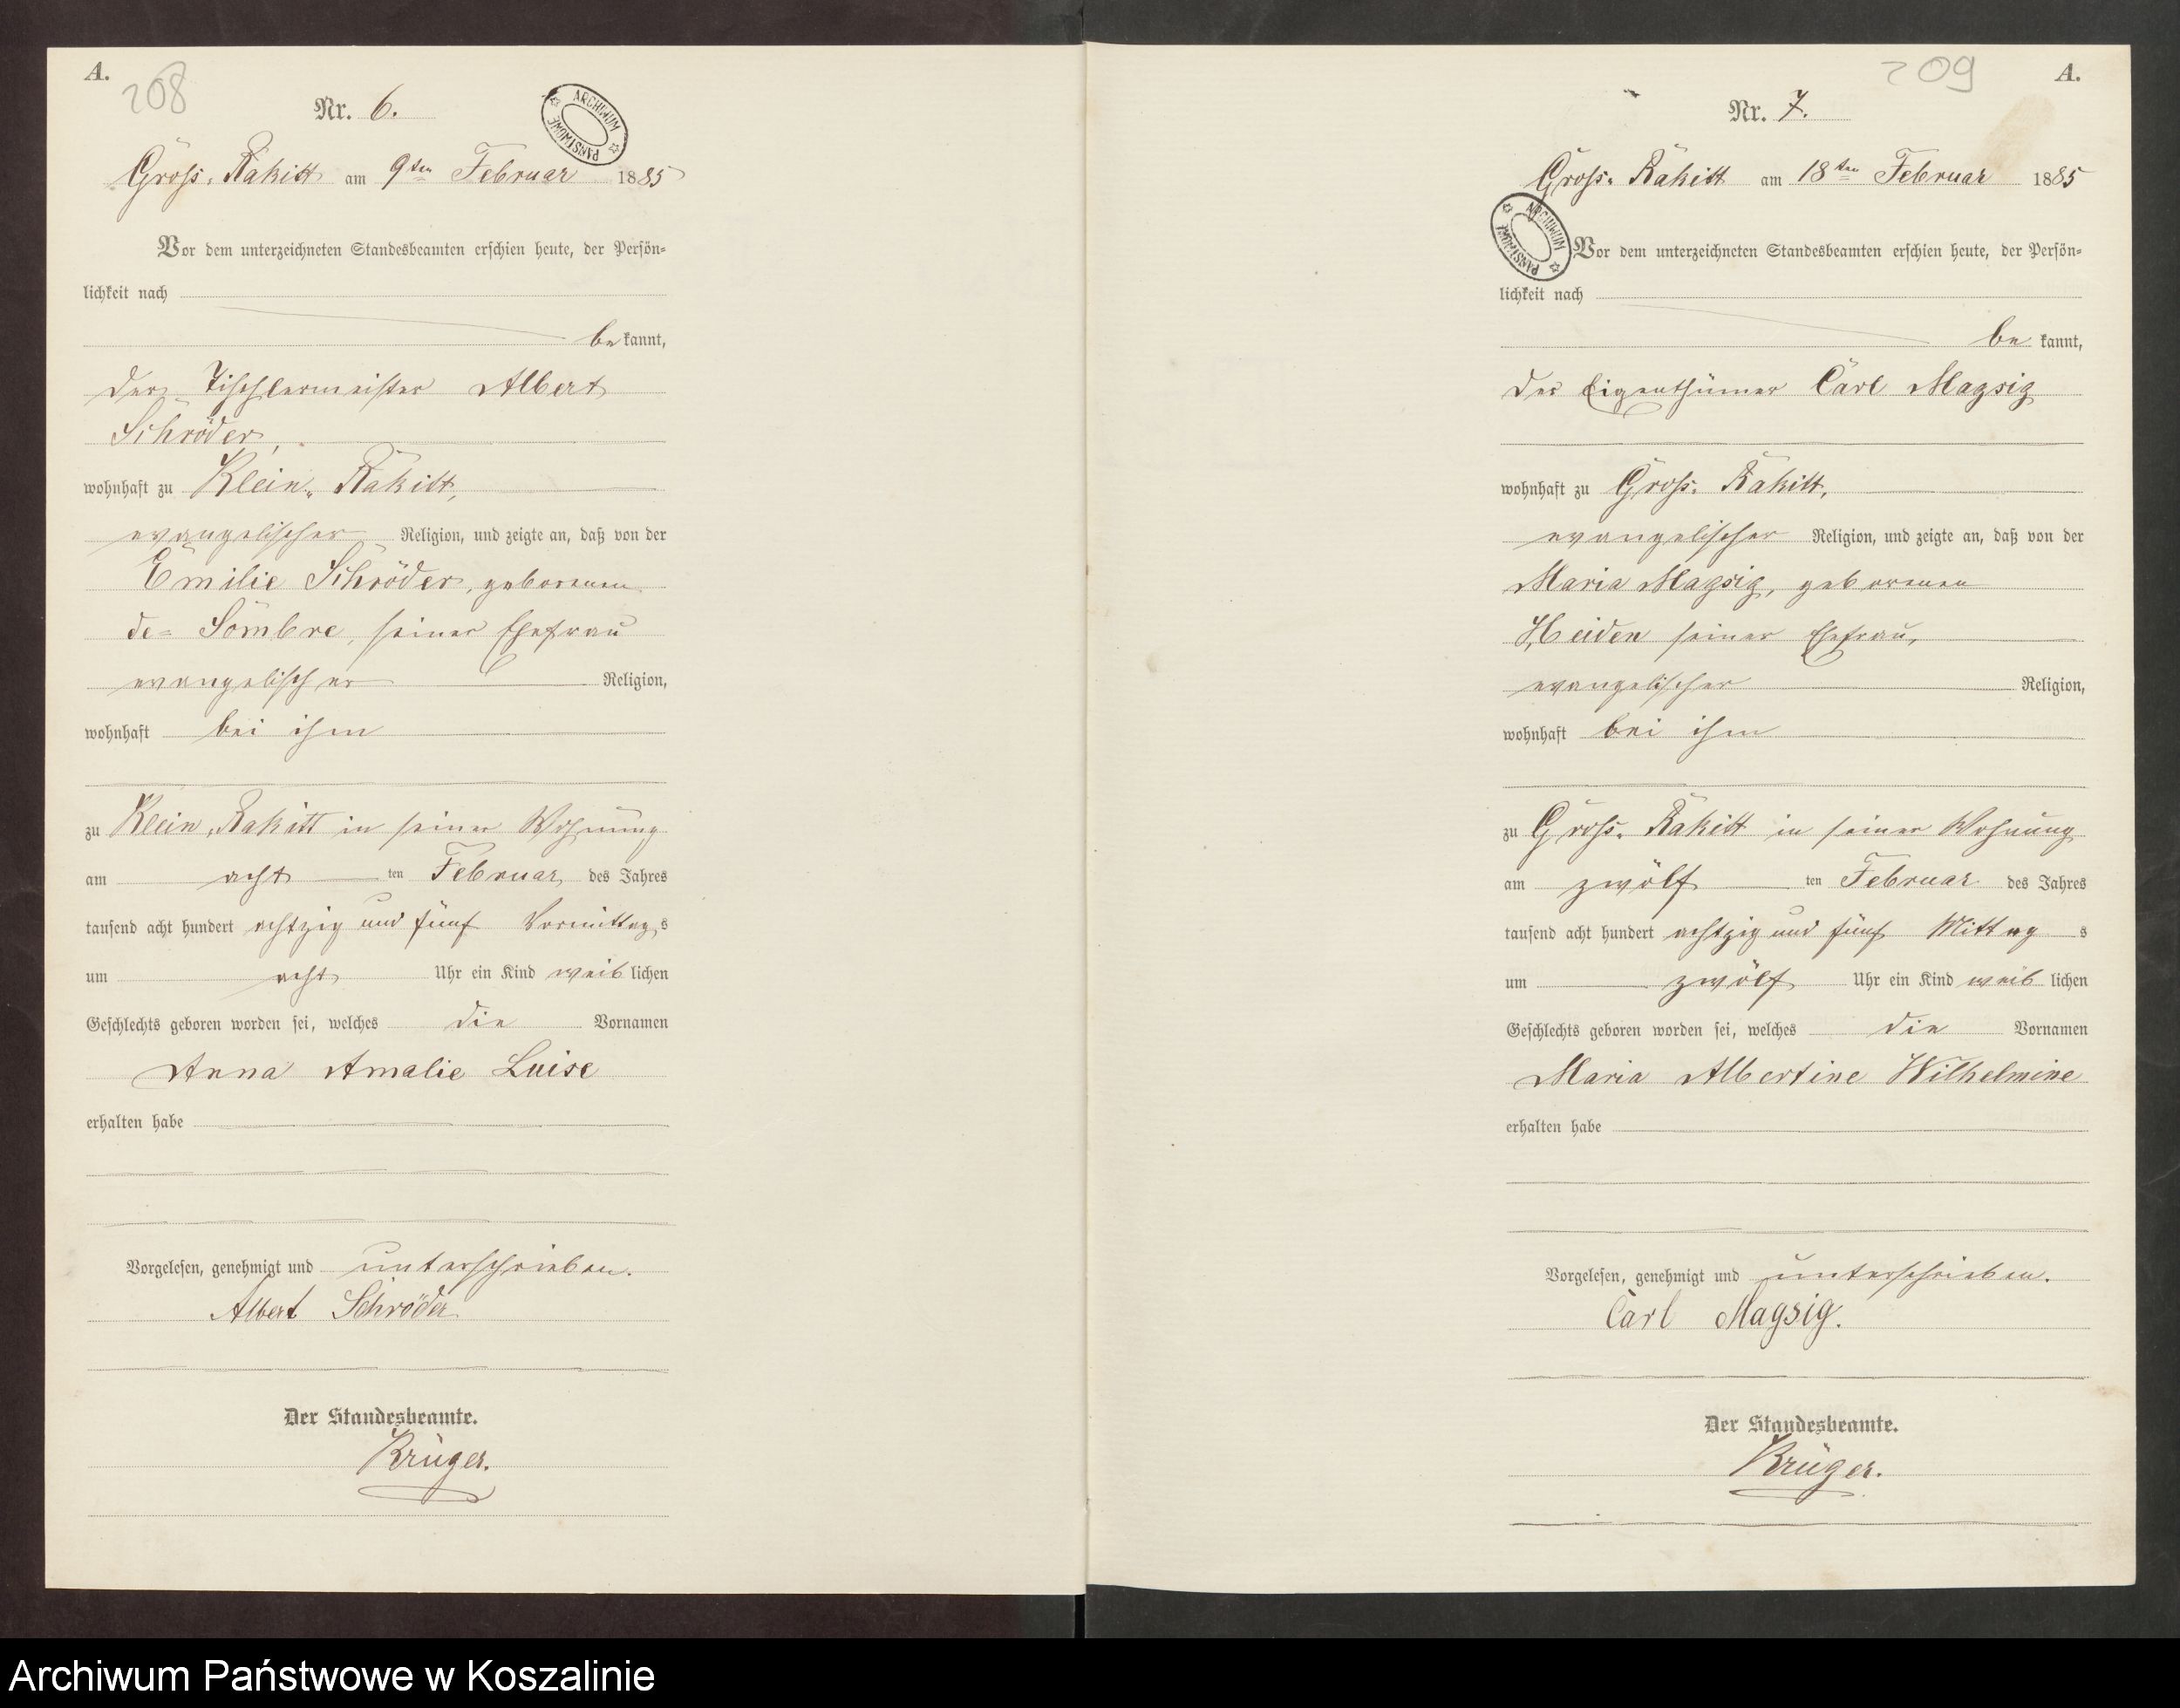 A.
208
Nr. 6.
ARCHIWUM PAŃSTWOWE
Gross-Rakitt am 9ten Februar 1885
Vor dem unterzeichneten Standesbeamten erschien heute, der Persön=
lichkeit nach
be kannt,
der Tischlermeister Albert
Schröder,
wohnhaft zu Klein-Rakitt,
evangelischer Religion, und zeigte an, daß von der
Emilie Schröder, geborenen
de= Sombre, seiner Ehefrau
evangelischer Religion,
wohnhaft bei ihm
zu Klein-Rakitt in seiner Wohnung
am acht ten Februar, des Jahres
tausend acht hundert achtzig und fünf Vormittag s
um acht Uhr ein Kind weib lichen
Geschlechts geboren worden sei, welches die Vornamen
Anna Amalie Luise
erhalten habe
Vorgelesen, genehmigt und unterschrieben.
Albert Schröder
Der Standesbeamte.
Krüger.
209
A.
Nr. 7.
Gross-Rakitt am 18ten Februar 1885
ARCHIWUM PAŃSTWOWE
Vor dem unterzeichneten Standesbeamten erschien heute, der Persön=
lichkeit nach
be kannt,
der Eigenthümer Carl Magsig
wohnhaft zu Gross-Rakitt,
evangelischer Religion, und zeigte an, daß von der
Maria Magsig, geborenen
Heiden seiner Ehefrau,
evangelischer Religion,
wohnhaft bei ihm
zu Gross-Rakitt in seiner Wohnung
am zwölf ten Februar des Jahres
tausend acht hundert achtzig und fünf Mittag s
um zwölf Uhr ein Kind weib lichen
Geschlechts geboren worden sei, welches die Vornamen
Maria Albertine Wilhelmine
erhalten habe
Vorgelesen, genehmigt und unterschrieben.
Carl Magsig.
Der Standesbeamte.
Krüger.
Archiwum Państwowe w Koszalinie